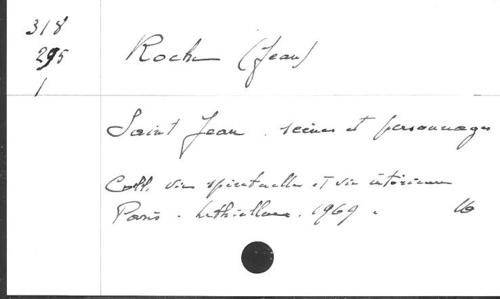 318
295
1
Roche (Jean)
Saint Jean. scènes et personnages
Coll. vie spirituelle et vie intérieure
Paris. Lethielleux. 1969.
16